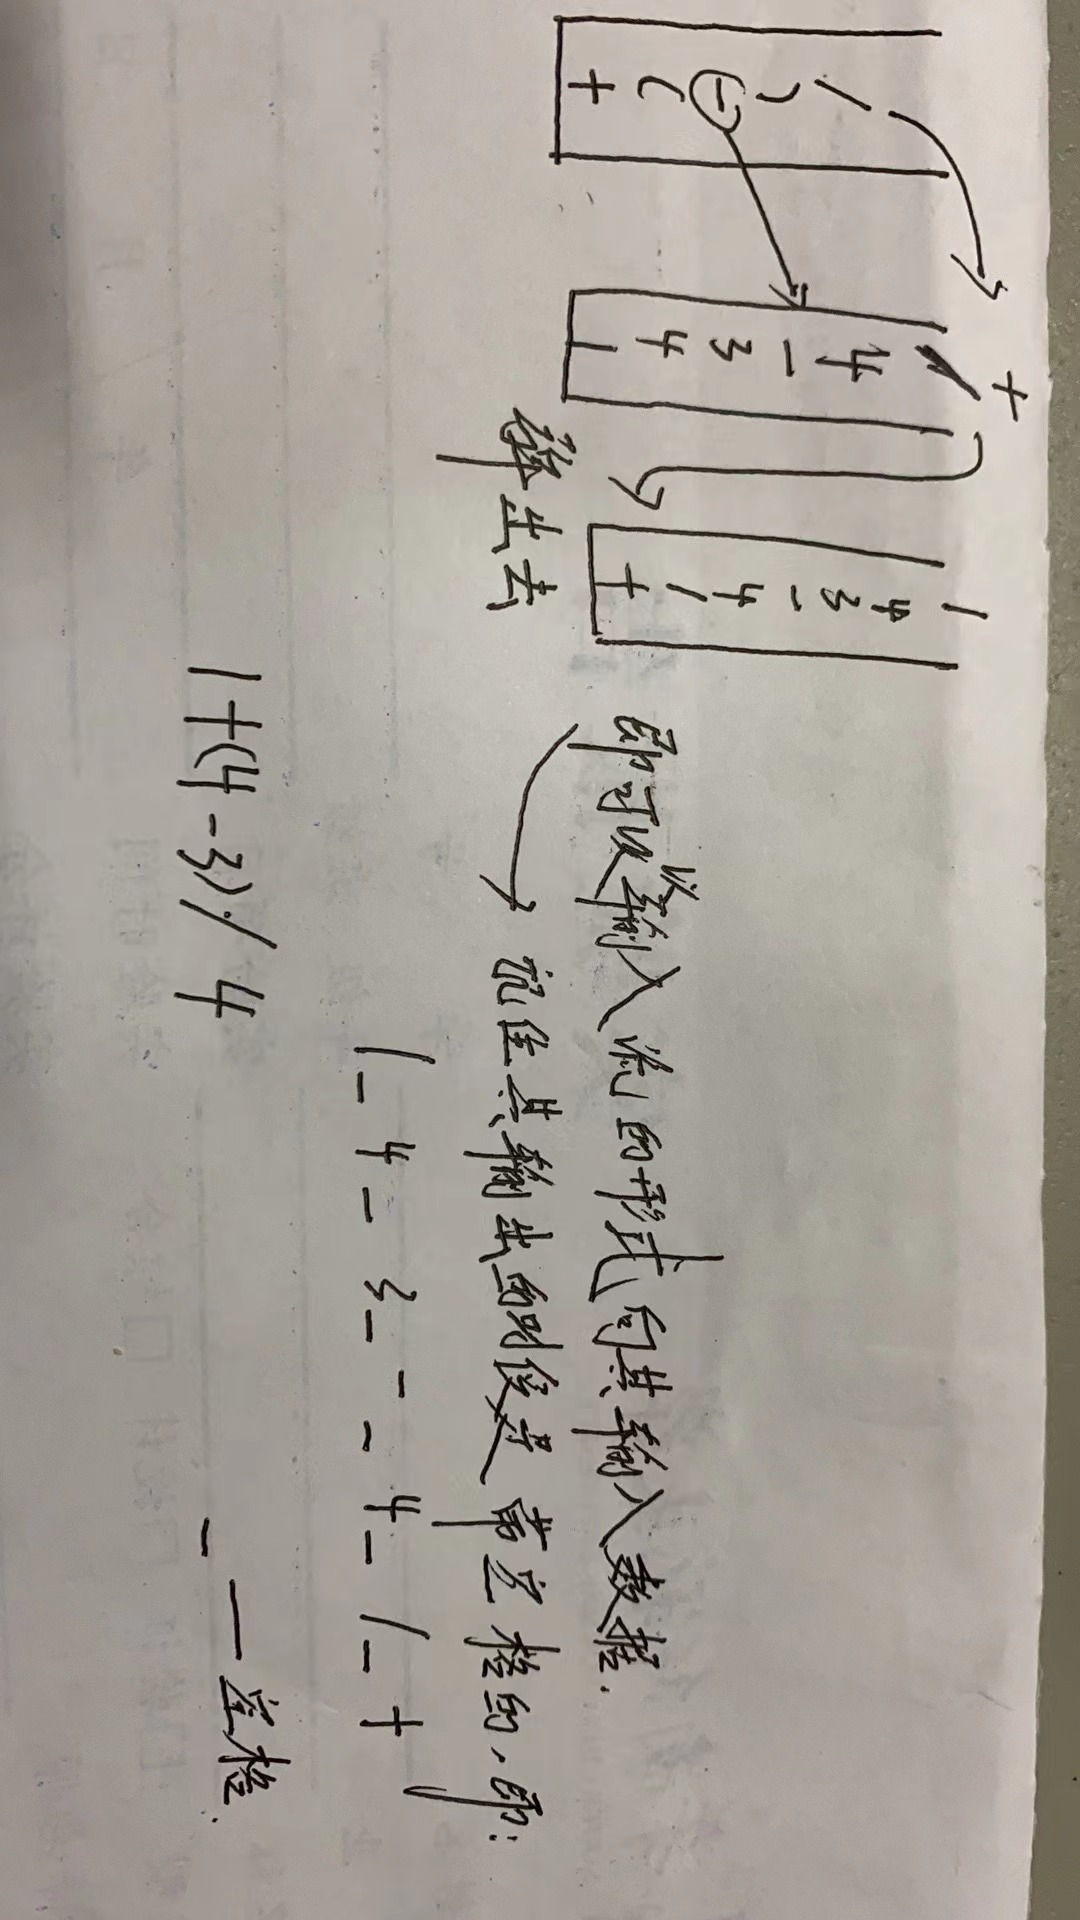 /
)
-
(
+
+
/
4
-
3
4
1
1
4
3
-
4
/
+
弹出去
即可以以输入流的形式向其输入数据.
记住其输出的时候是带空格的,即:
1_ 4_ 3_ -_ 4_ /_ +
1+(4-3)/4
_ — 空格.